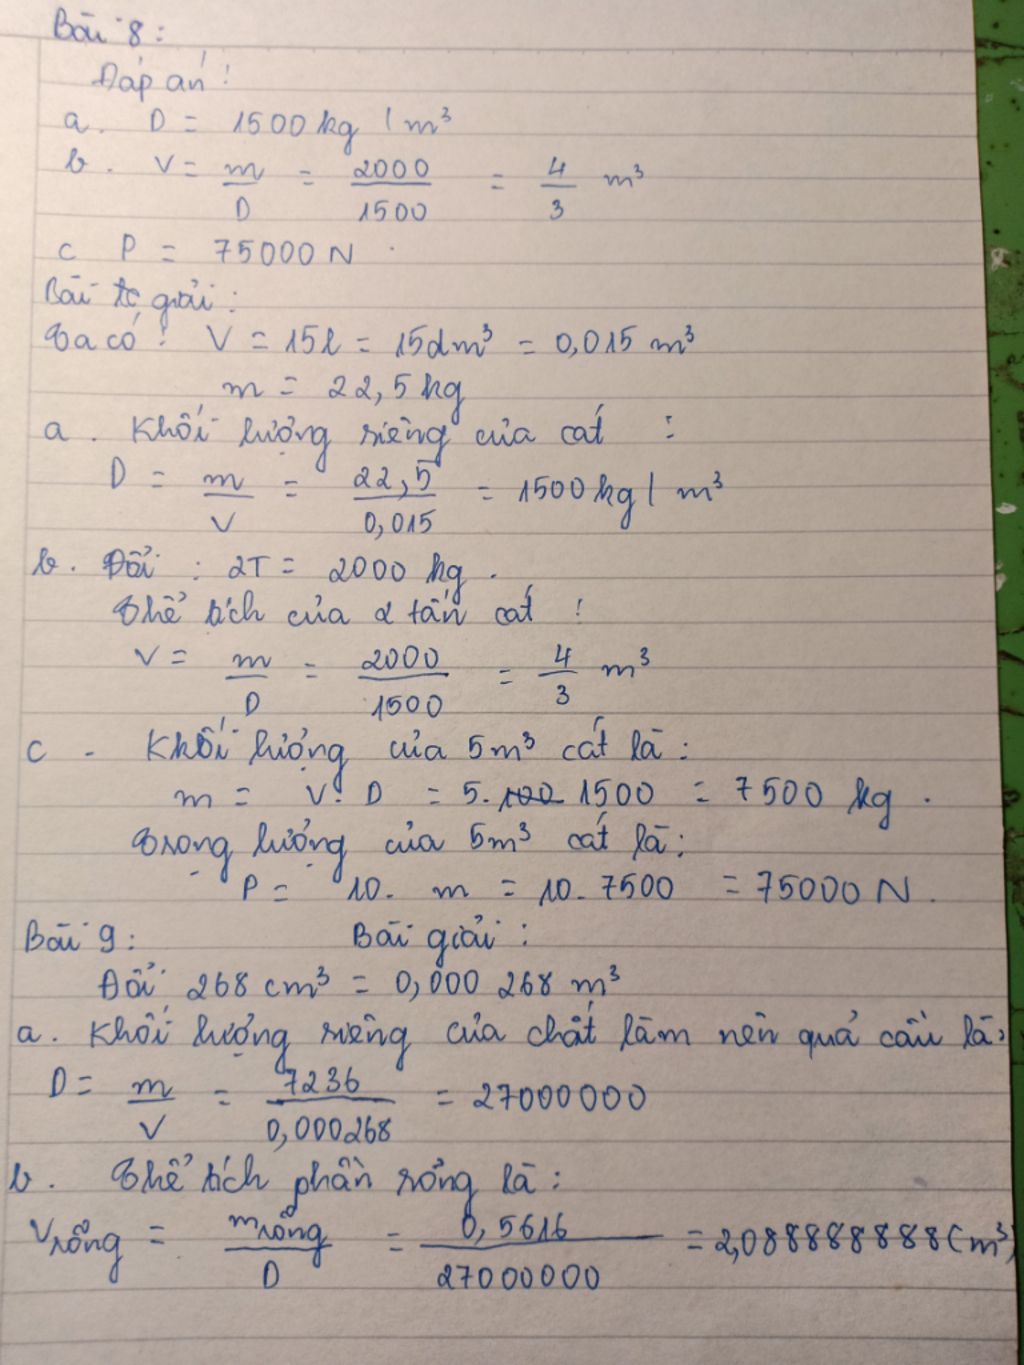 Bài 8:
Đáp án:
a. D = 1500 kg / m³
b. V = m/D = 2000/1500 = 4/3 m³
c P = 75000 N.
Bài giải:
Ta có: V = 15l = 15dm³ = 0,015 m³
m = 22,5 kg
a. Khối lượng riêng của cát :
D = m/V = 22,5/0,015 = 1500 kg / m³
b. Đổi : 2T = 2000 kg.
Thể tích của 2 tấn cát :
V = m/D = 2000/1500 = 4/3 m³
c - Khối lượng của 5m³ cát là:
m = V. D = 5. 1500 = 7500 kg.
Trọng lượng của 5m³ cát là:
P = 10. m = 10. 7500 = 75000 N.
Bài 9: Bài giải:
Đổi 268 cm³ = 0,000 268 m³
a. Khối lượng riêng của chất làm nên quả cầu là:
D = m/V = 7236/0,000268 = 27000000
b. Thể tích phần rỗng là:
Vrỗng = mrỗng/D = 0,5616/27000000 = 2,088888888 (m³)